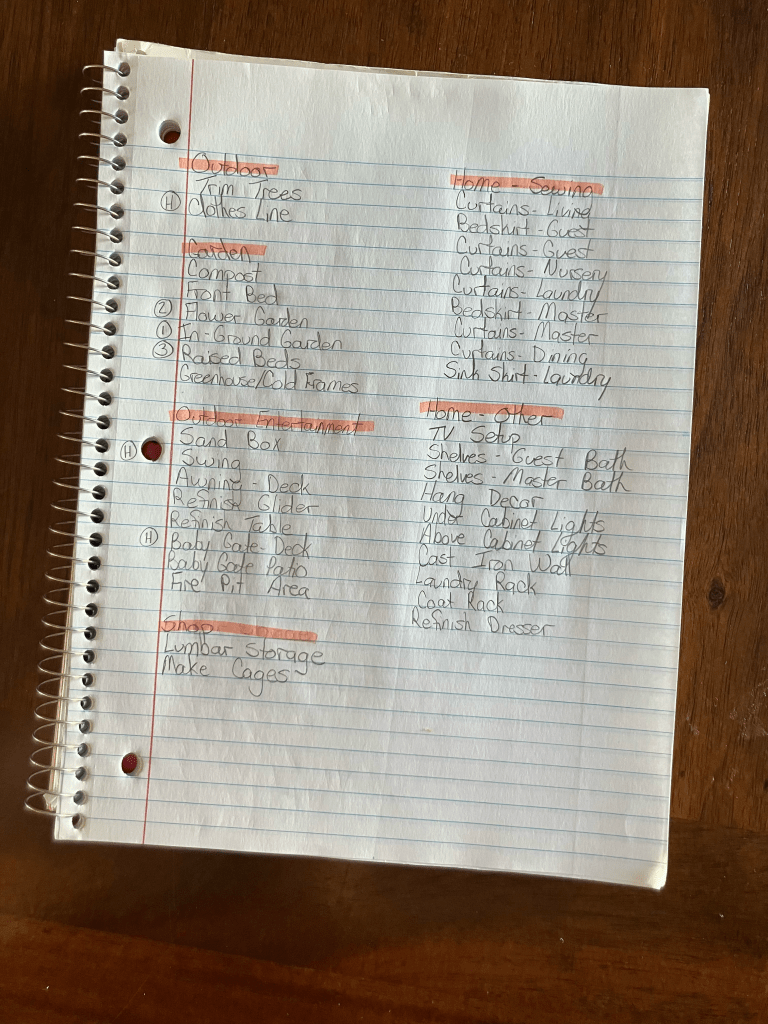 Outdoor
Trim Trees
(H) Clothes Line
Garden
Compost
Front Bed
(2) Flower Garden
(1) In-Ground Garden
(3) Raised Beds
Greenhouse/Cold Frames
Outdoor Entertainment
Sand Box
(H) Swing
Awning - Deck
Refinish Glider
Refinish Table
(H) Baby Gate - Deck
Baby Gate Patio
Fire Pit Area
Shop
Lumbar Storage
Make Cages
Home - Sewing
Curtains - Living
Bedskirt - Guest
Curtains - Guest
Curtains - Nursery
Curtains - Laundry
Bedskirt - Master
Curtains - Master
Curtains - Dining
Sink Skirt - Laundry
Home - Other
TV Setup
Shelves - Guest Bath
Shelves - Master Bath
Hang Decor
Under Cabinet Lights
Above Cabinet Lights
Cast Iron Wall
Laundry Rack
Coat Rack
Refinish Dresser